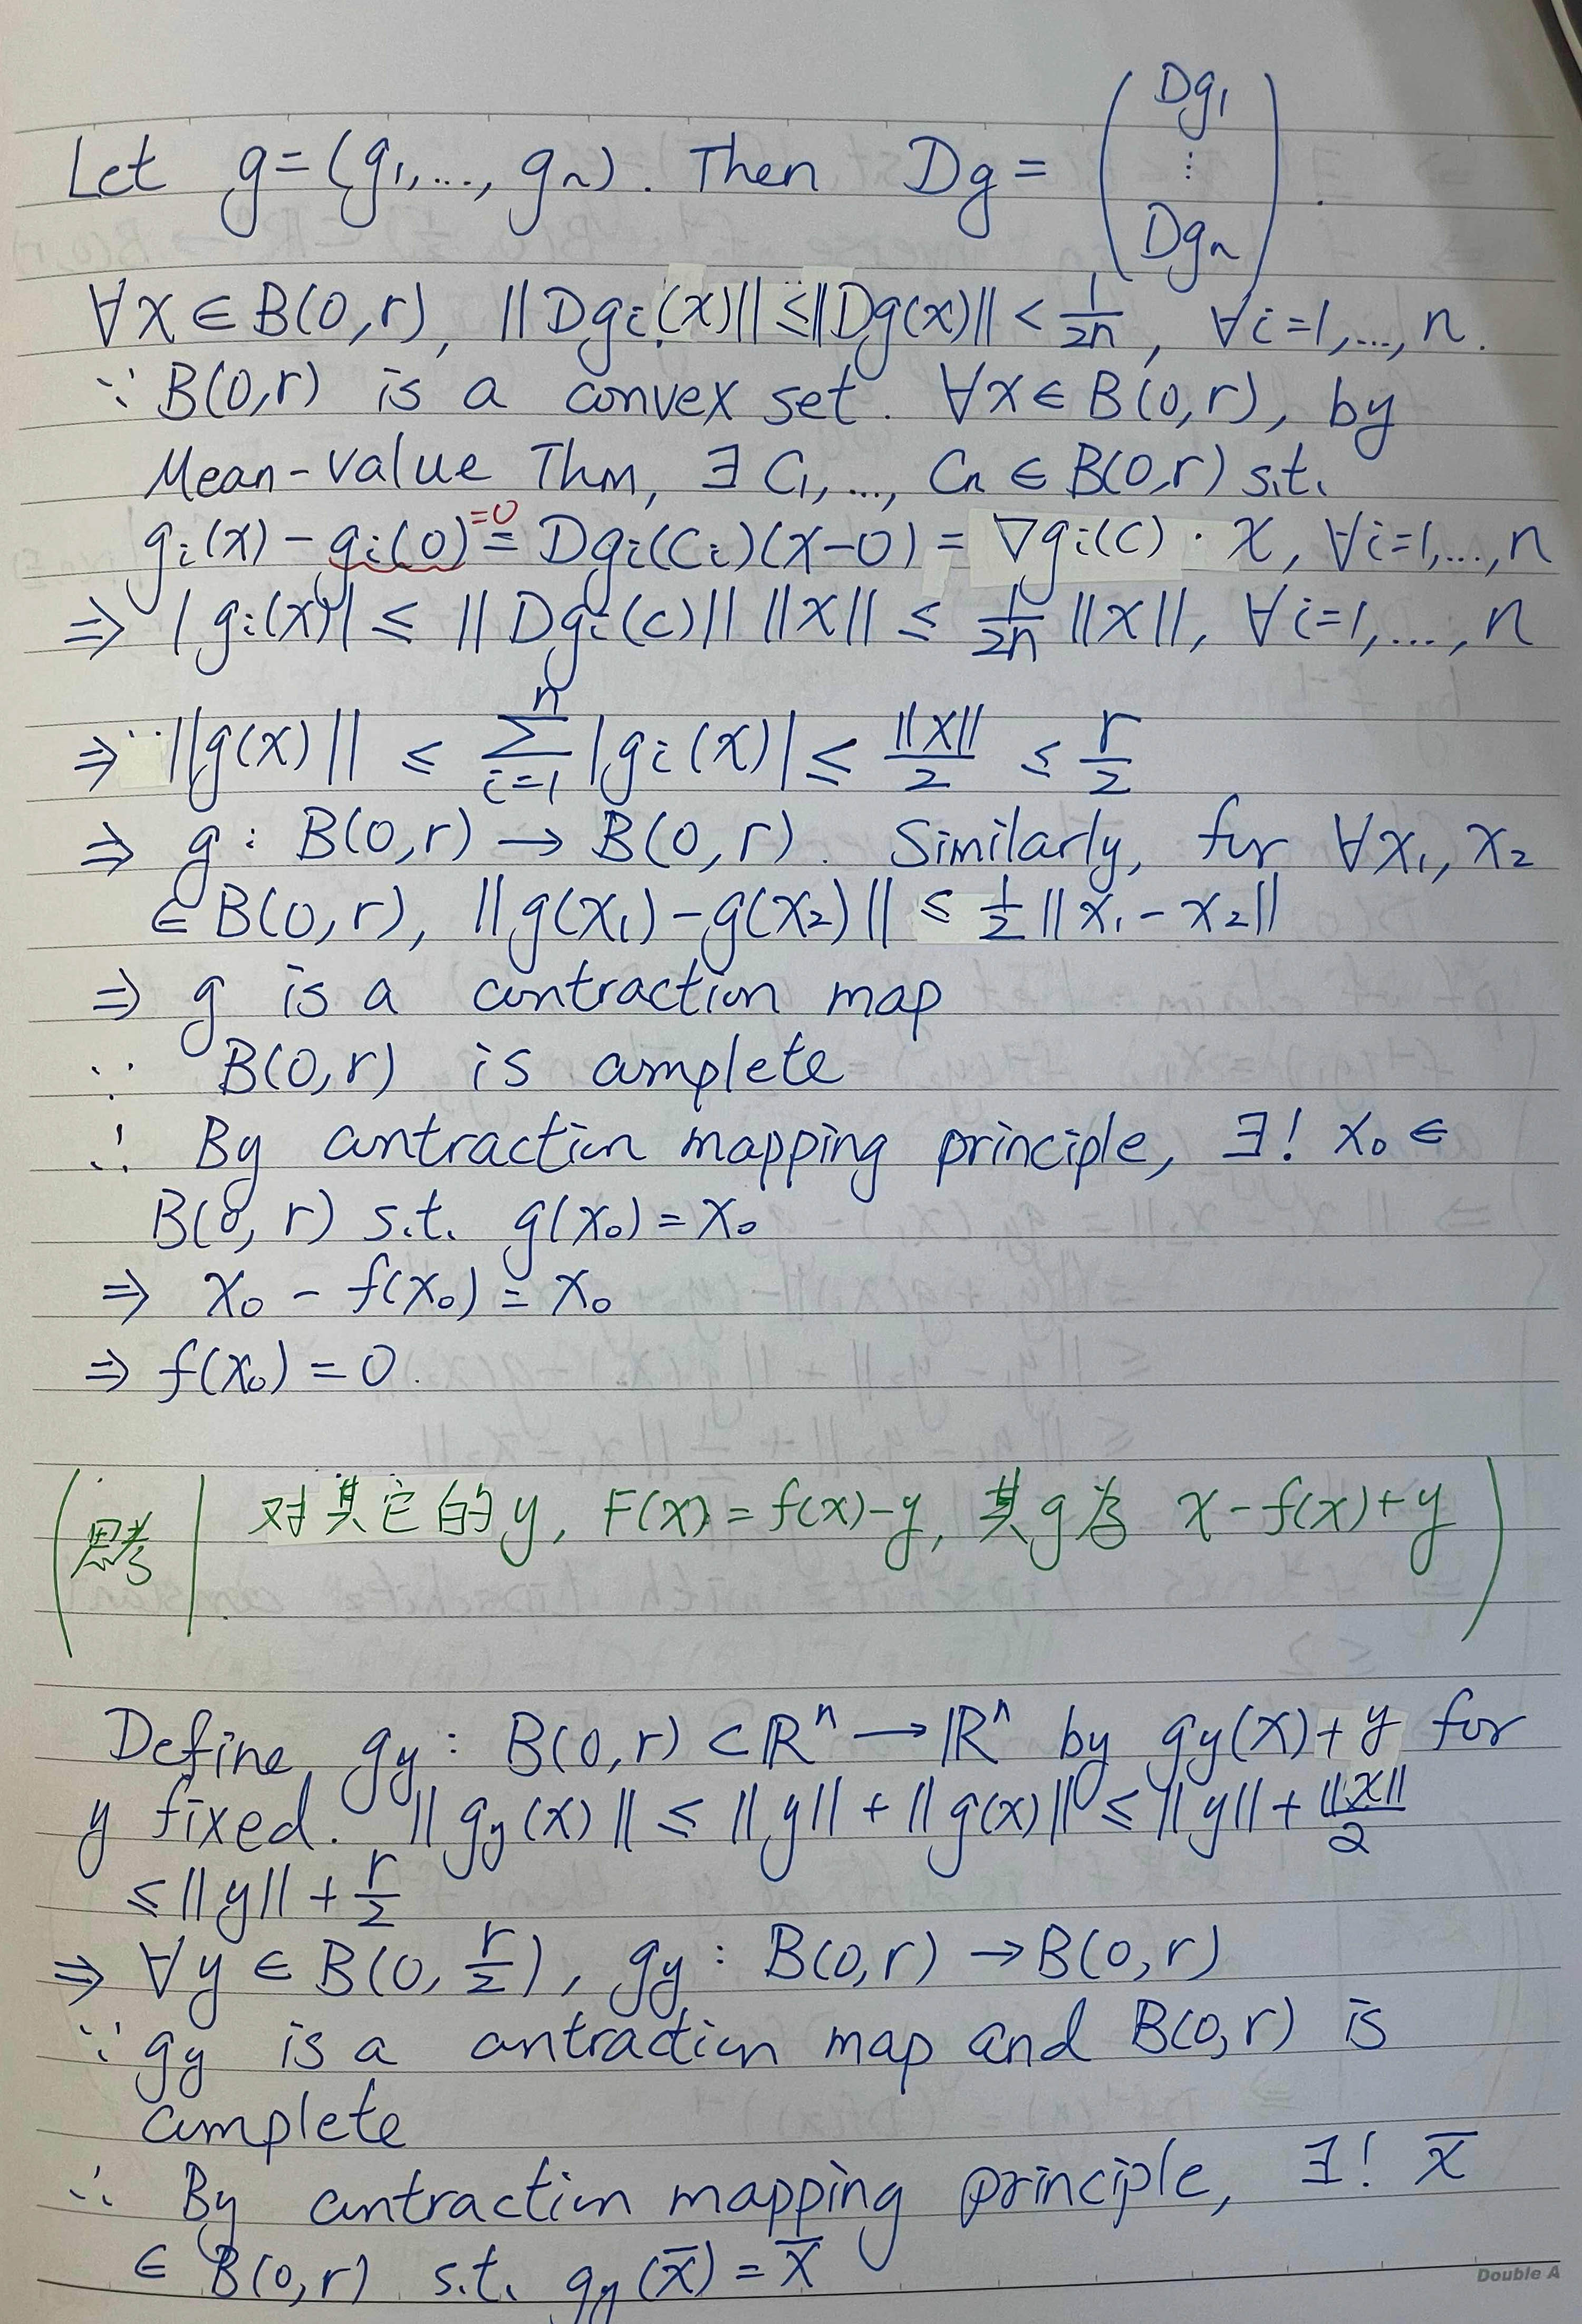 Let g=(g₁,..., gₙ). Then Dg = (Dg₁ ⋮ Dgₙ).
∀x∈B(0,r), ||Dgᵢ(x)|| ≤ ||Dg(x)|| < 1/2n, ∀i=1,..., n.
∵ B(0,r) is a convex set. ∀x∈B(0,r), by
Mean-value Thm, ∃ C₁,..., Cₙ ∈ B(0,r) s.t.
gᵢ(x) - gᵢ(0) =0 = Dgᵢ(Cᵢ)(x-0) = ∇gᵢ(c)·x, ∀i=1,..., n
⇒ |gᵢ(x)| ≤ ||Dgᵢ(c)|| ||x|| ≤ 1/2n ||x||, ∀i=1,..., n
⇒ ||g(x)|| ≤ Σᵢ₌₁ⁿ |gᵢ(x)| ≤ ||x||/2 ≤ r/2
⇒ g: B(0,r) → B(0,r). Similarly, for ∀x₁, x₂
∈ B(0,r), ||g(x₁)-g(x₂)|| ≤ 1/2 ||x₁-x₂||
⇒ g is a contraction map
∵ B(0,r) is complete
∴ By contraction mapping principle, ∃! x₀ ∈
B(0,r) s.t. g(x₀)=x₀
⇒ x₀ - f(x₀) = x₀
⇒ f(x₀) = 0.
(思考 | 对其它的y, F(x)=f(x)-y, 其g为 x-f(x)+y)
Define gy: B(0,r)⊂ℝⁿ→ℝⁿ by gy(x)+y for
y fixed. ||gy(x)|| ≤ ||y|| + ||g(x)|| ≤ ||y|| + ||x||/2
≤ ||y|| + r/2
⇒ ∀y∈B(0, r/2), gy: B(0,r) → B(0,r)
∵ gy is a contraction map and B(0,r) is
complete
∴ By contraction mapping principle, ∃! x̄
∈ B(0,r) s.t. gy(x̄) = x̄
Double A